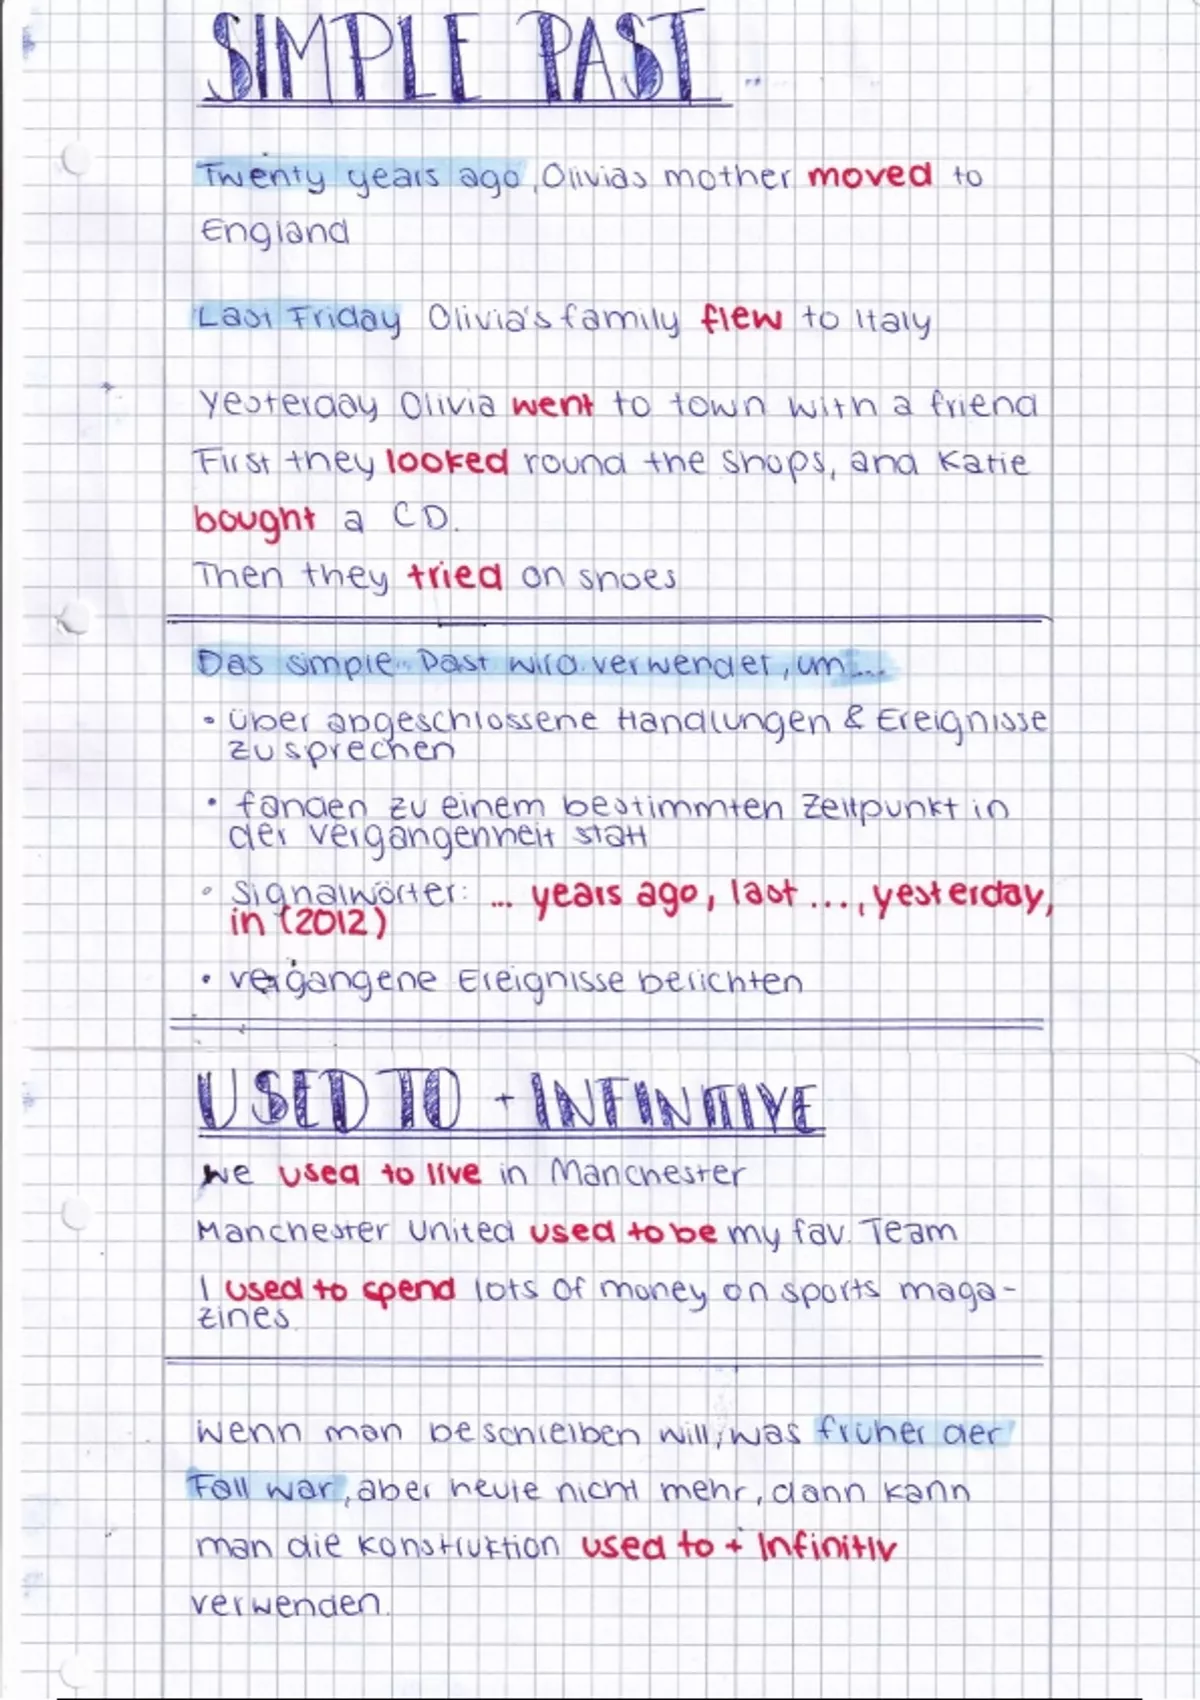 SIMPLE PAST
Twenty years ago, Olivias mother moved to
England
Last Friday Olivia's family flew to Italy
Yesterday Olivia went to town with a friend
First they looked round the shops, and Katie
bought a CD.
Then they tried on shoes
Das simple Past wird verwendet, um...
• über abgeschlossene Handlungen & Ereignisse
zu sprechen
• fanden zu einem bestimmten Zeitpunkt in
der Vergangenheit statt
• Signalwörter: ... years ago, last ..., yesterday,
in (2012)
• vergangene Ereignisse berichten
USED TO + INFINITIVE
we used to live in Manchester
Manchester United used to be my fav. Team
I used to spend lots of money on sports maga-
zines.
Wenn man beschreiben will, was früher der
Fall war, aber heute nicht mehr, dann kann
man die Konstruktion used to + Infinitiv
verwenden.